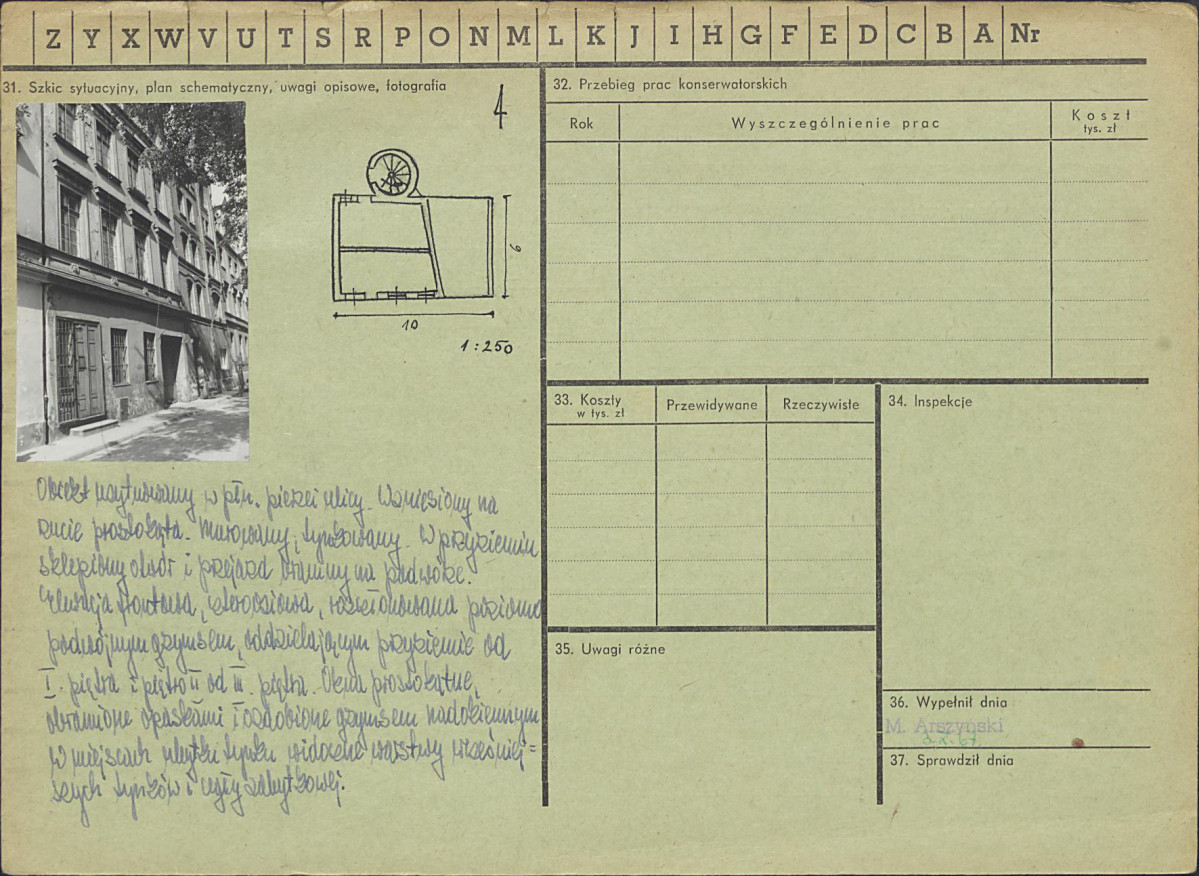 Z Y X W V U T S R P O N M L K J I H G F E D C B A Nr
31. Szkic sytuacyjny, plan schematyczny, uwagi opisowe, fotografia
4
6
10
1:250
Obiekt usytuowany w płn. pierzei ulicy. Wzniesiony na
rzucie prostokąta. Murowany, tynkowany. W przyziemiu
sklepiony otwór i przejazd bramny na podwórze.
Elewacja frontowa, czteroosiowa, rozczłonkowana poziomo
podwójnym gzymsem, oddzielającym przyziemie od
I. piętra i piętro II od III. piętra. Okna prostokątne,
obramione opaskami i ozdobione gzymsem nadokiennym
W miejscach ubytku tynku widoczne warstwy wcześniej=
szych tynków i cegły zabytkowej.
32. Przebieg prac konserwatorskich
Rok Wyszczególnienie prac Koszt
tys. zł
33. Koszty
w tys. zł
Przewidywane
Rzeczywiste
34. Inspekcje
35. Uwagi różne
36. Wypełnił dnia
M. Arszyński
37. Sprawdził dnia